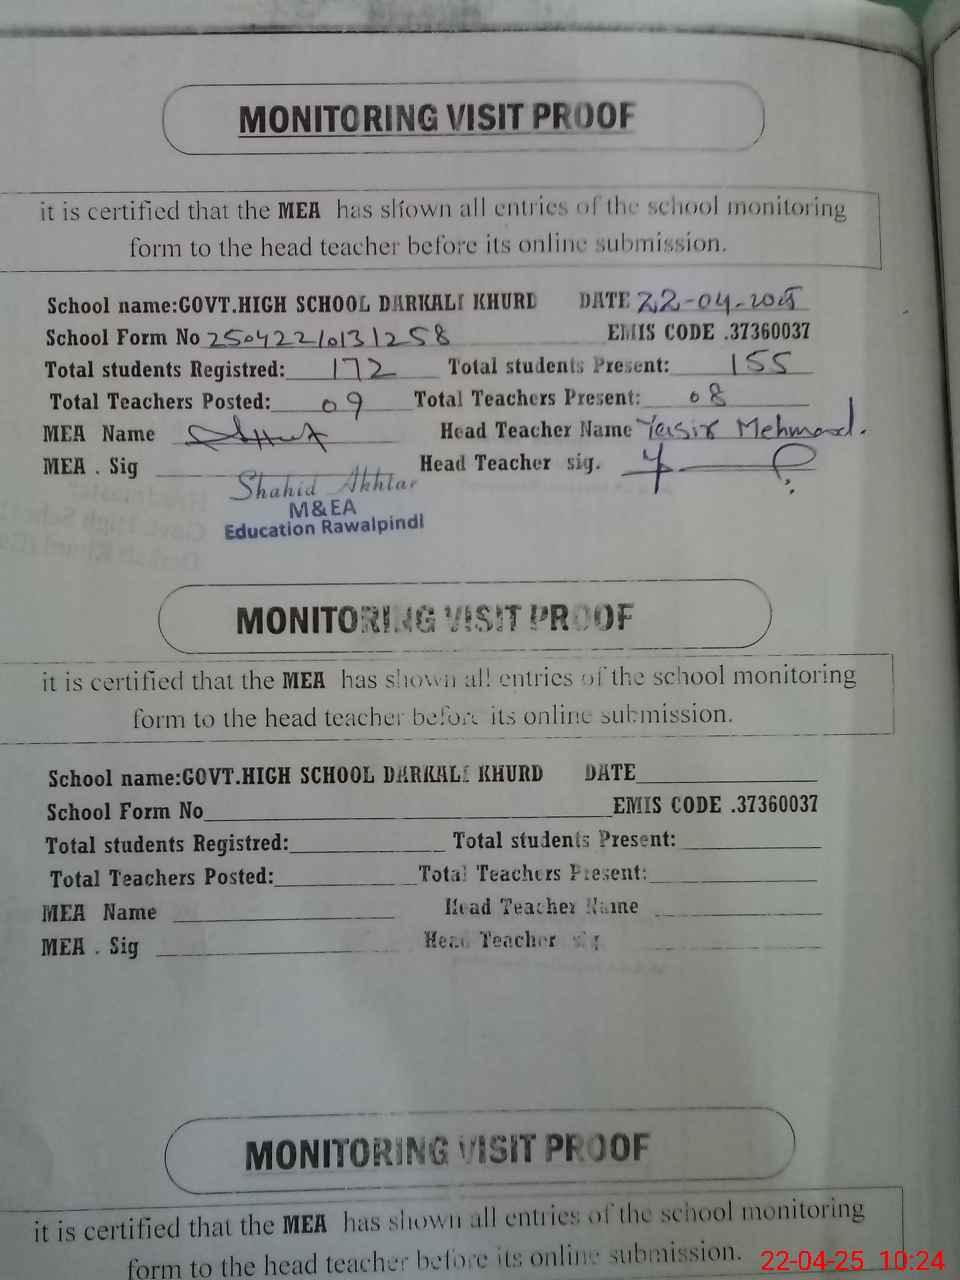 MONITORING VISIT PROOF
it is certified that the MEA has shown all entries of the school monitoring
form to the head teacher before its online submission.
School name:GOVT.HIGH SCHOOL DARKALI KHURD DATE 22-04-2025
School Form No 25042210131258 EMIS CODE .37360037
Total students Registred: 172 Total students Present: 155
Total Teachers Posted: 09 Total Teachers Present: 08
MEA Name Head Teacher Name Yasir Mehmood.
MEA . Sig Head Teacher sig.
Shahid Akhtar
M&EA
Education Rawalpindi
MONITORING VISIT PROOF
it is certified that the MEA has shown all entries of the school monitoring
form to the head teacher before its online submission.
School name:GOVT.HIGH SCHOOL DARKALI KHURD DATE
School Form No EMIS CODE .37360037
Total students Registred: Total students Present:
Total Teachers Posted: Total Teachers Present:
MEA Name Head Teacher Name
MEA . Sig Head Teacher sig
MONITORING VISIT PROOF
it is certified that the MEA has shown all entries of the school monitoring
form to the head teacher before its online submission.
22-04-25 10:24